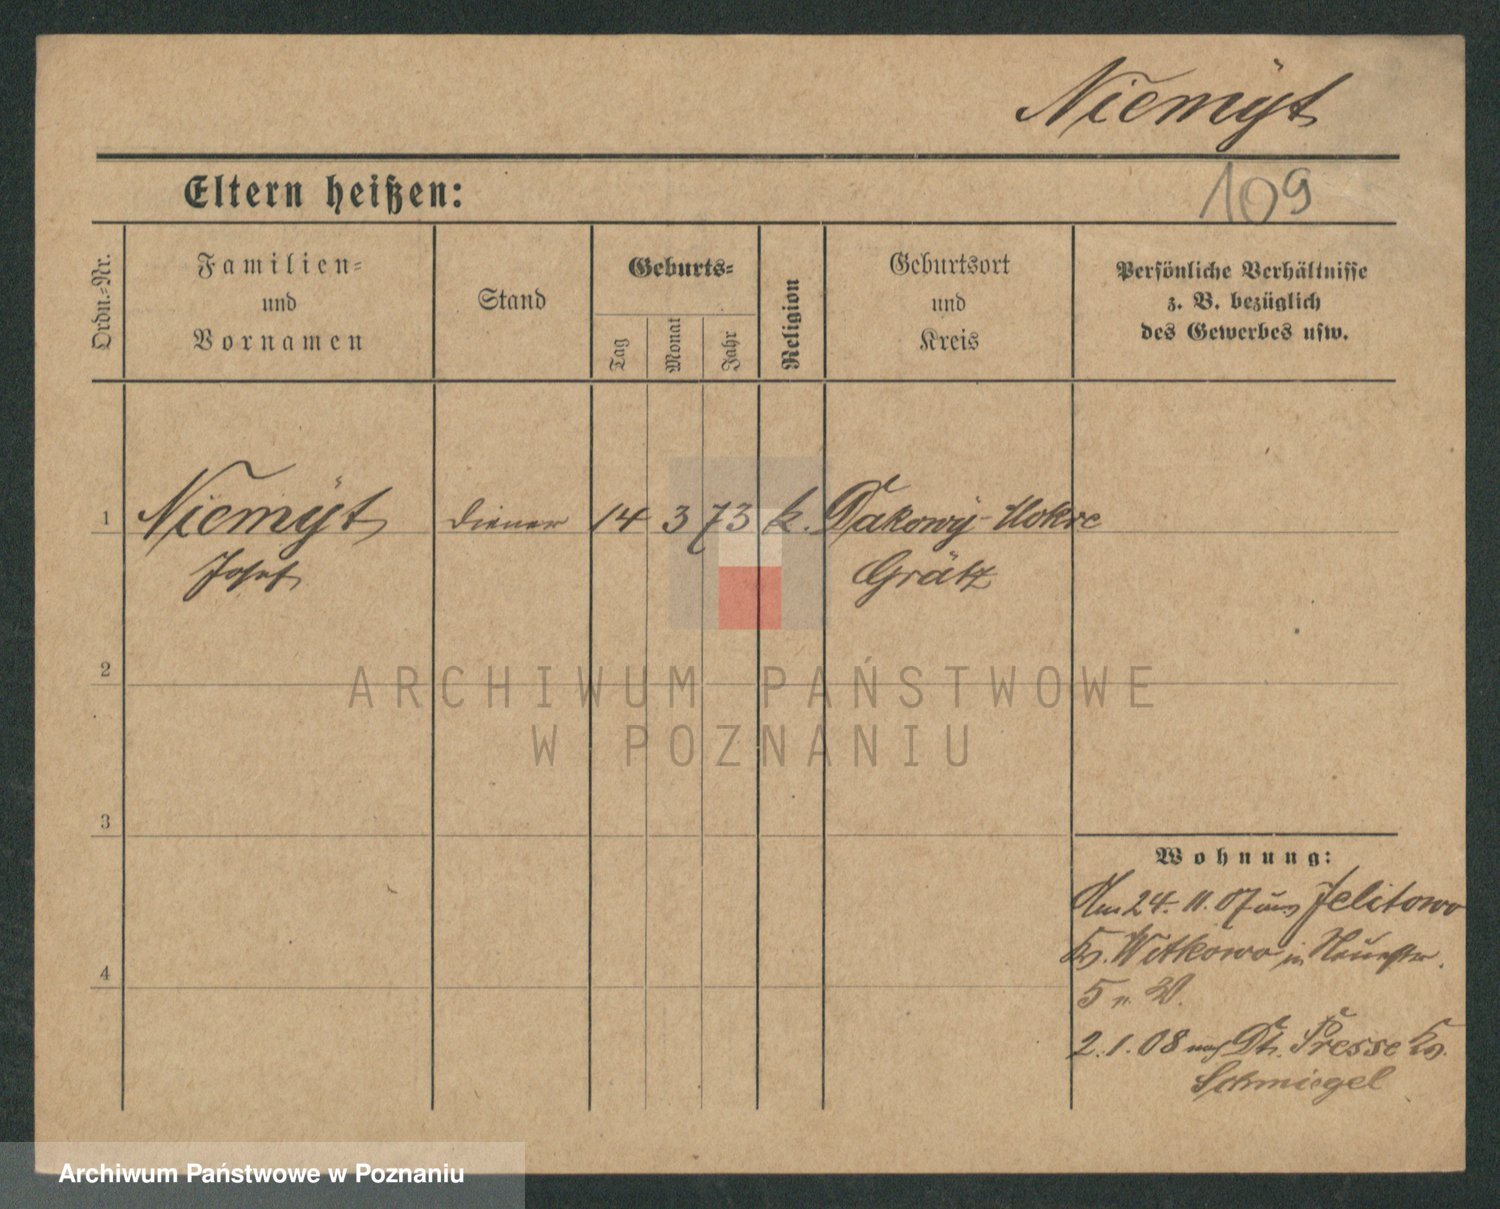 Niemÿt
109
Eltern heißen:
Ordn.-Nr.
Familien-
und
Vornamen
Stand
Geburts-
Tag
Monat
Jahr
Religion
Geburtsort
und
Kreis
Persönliche Verhältnisse
z. B. bezüglich
des Gewerbes usw.
1 Niemÿt Diener 14 3 73 k. Dakowÿ-Mokre
Josef Grätz
2
3
4
Wohnung:
Am 24. 11. 07 aus Jelitowo
Kr. Witkowo in
5 W.
2. 1. 08 nach Dt. Presse Kr.
Schmiegel
ARCHIWUM PAŃSTWOWE
W POZNANIU
Archiwum Państwowe w Poznaniu